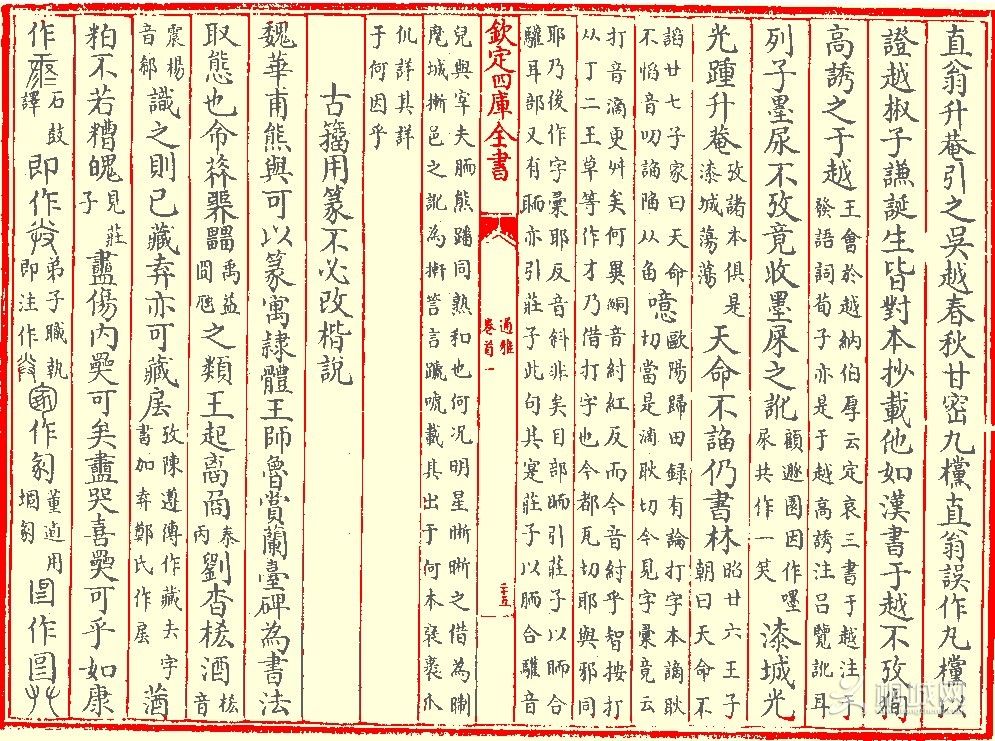 直翁升菴引之吳越春秋甘密九欓直翁誤作丸欓以
證越椒子謙誕生皆對本抄載他如漢書于越不攷狥
高誘之于越王會於越納伯厚云定哀三書于越注于發語詞荀子亦是于越高誘注呂覽訛耳
列子墨尿不攷竟收墨屎之訛顧遯園因作嚜屎共作一笑漆城光
光踵升菴攷諸本俱是漆城蕩蕩天命不謟仍書林昭廿六王子朝曰天命不
謟廿七子家曰天命不慆音叨謟陷从臽噫歐陽歸田録有論打字本謫耿切當是滴耿切今見字彙竟云
打音滴更舛矣何異絅音紂紅反而今音紂乎智按打从丁二王草等作才乃借打字也今都瓦切耶與邪同
欽定四庫全書
通雅
卷首一
二十五
耶乃後作字彙耶反音斜非矣目部眄引莊子以眄合驩耳部又有聏亦引莊子此句其寔莊子以胹合驩音
兒與宰夫胹熊蹯同熟和也何況明星晰晰之借為晣麾城摲邑之訛為摲詧言蹠唬載其出于何本袞裒亦
仉詳其詳于何因乎
古籀用篆不必改楷說
魏華甫熊與可以篆寓隸體王師魯賞蘭臺碑為書法
取態也命之類王起劉杳酒音
震楊音郗識之則已藏弆亦可藏攷陳遵傳作藏去字書加弆鄭氏作
粕不若糟魄見莊子衋傷內奰可矣衋哭喜奰可乎如康
作石鼓譯即作弟子職執即注作作匃董逌用作圖艸